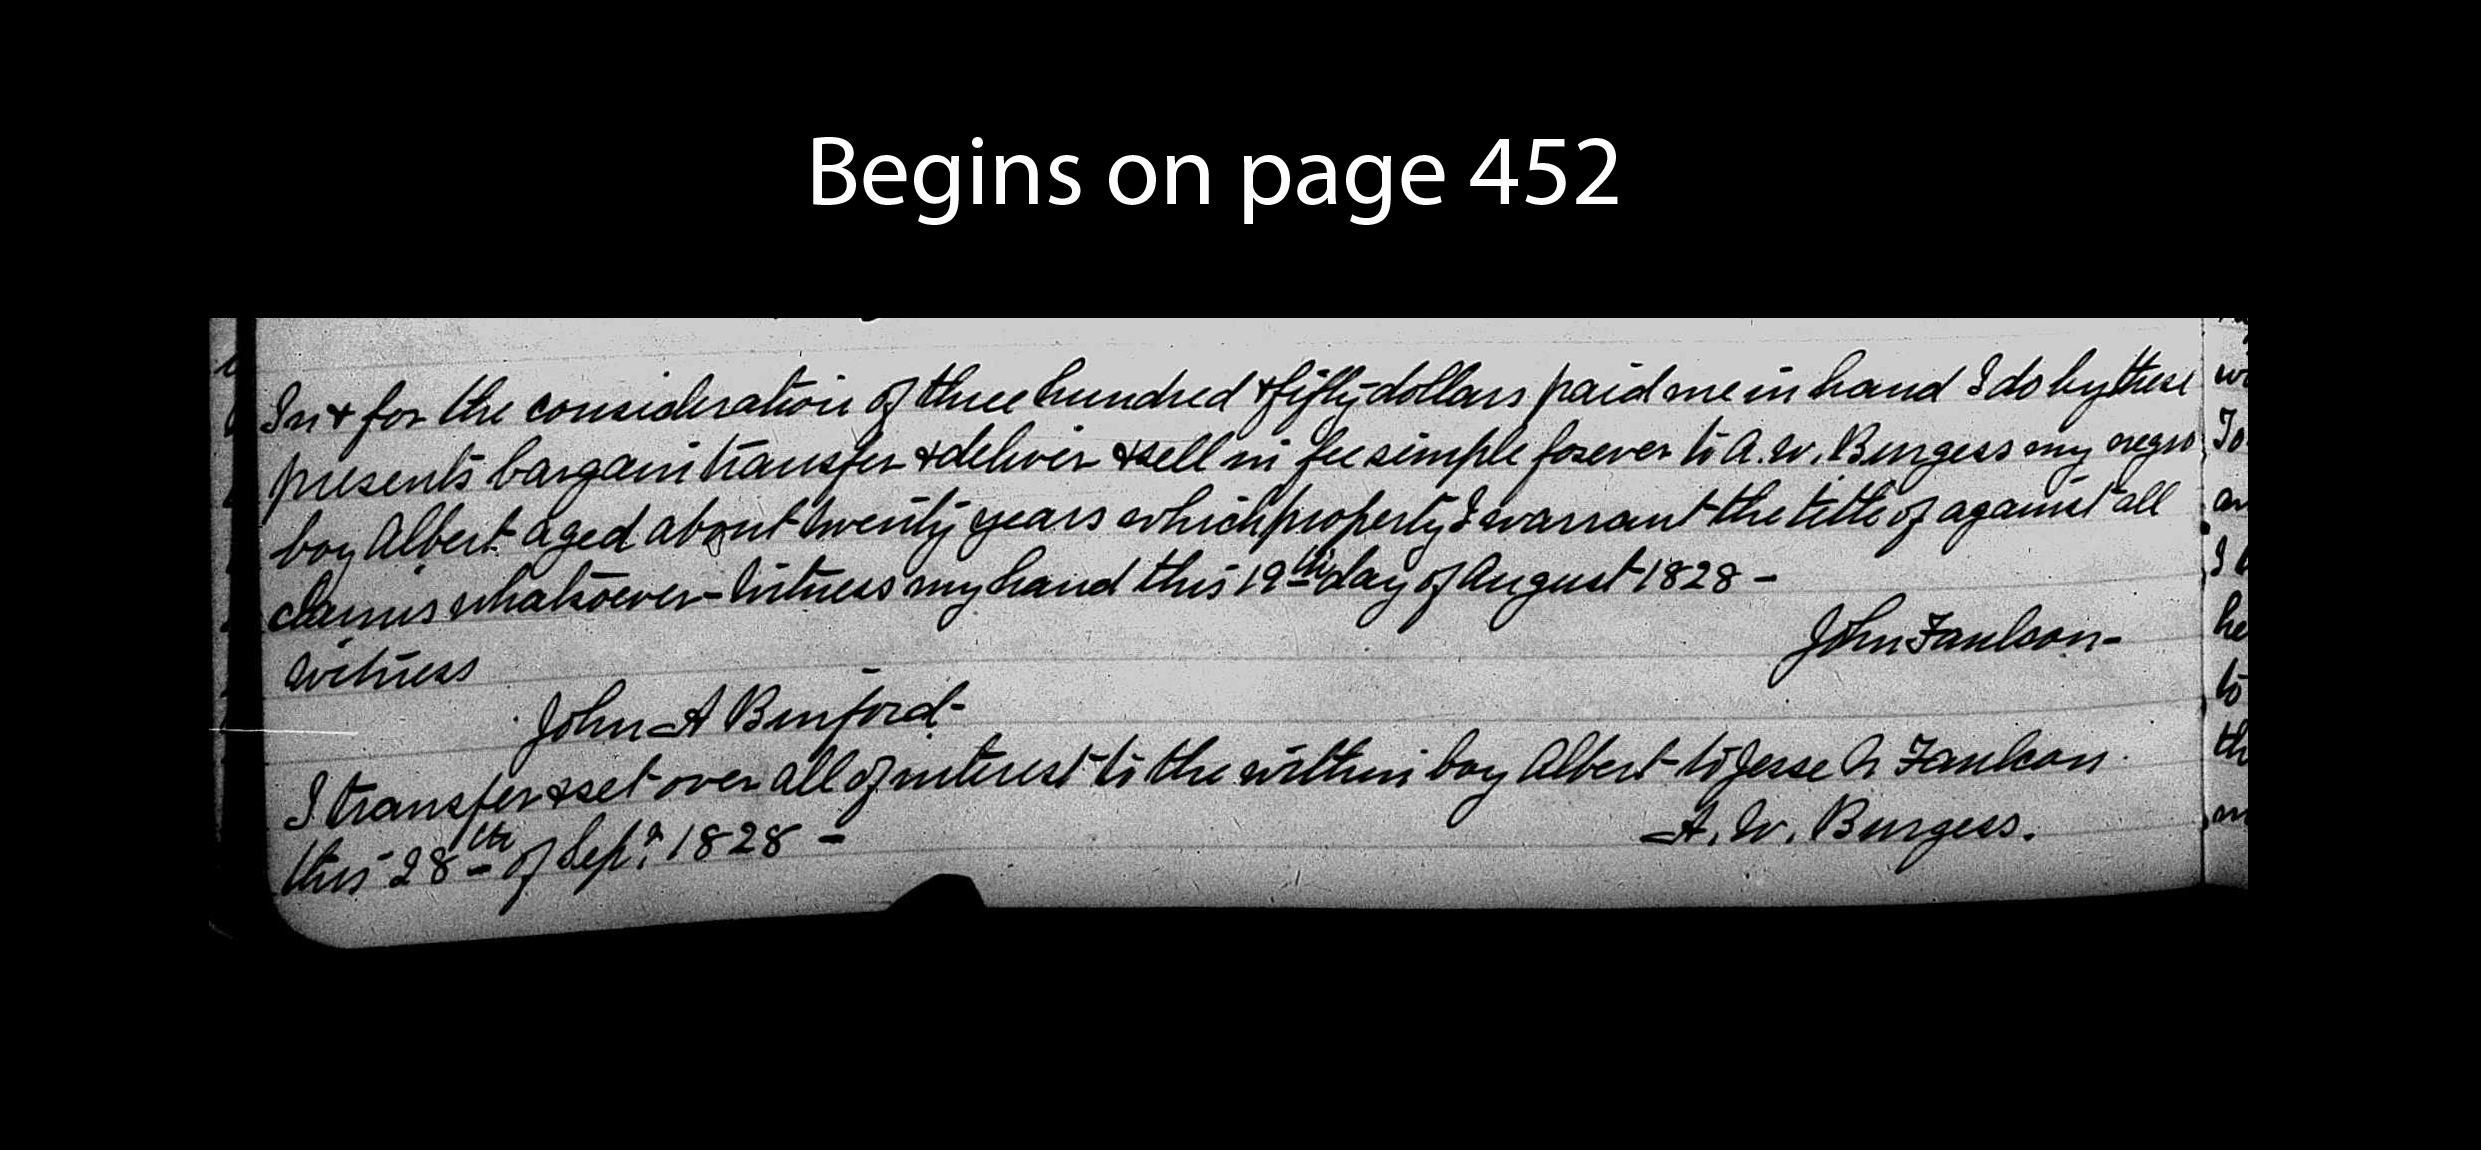 Begins on page 452
In & for the consideration of three hundred & fifty dollars paid me in hand I do by these
presents bargain transfer & deliver & sell in fee simple forever to A. W. Burgess my negro
boy Albert aged about twenty years which property I warrant the title of against all
claims whatsoever - Witness my hand this 19th day of August 1828 -
John Faulson -
Witness
John A Binford -
I transfer & set over all of interest to the within boy Albert to Jesse A Faulcon.
this 28th of Sept. 1828 -
A. W. Burgess.